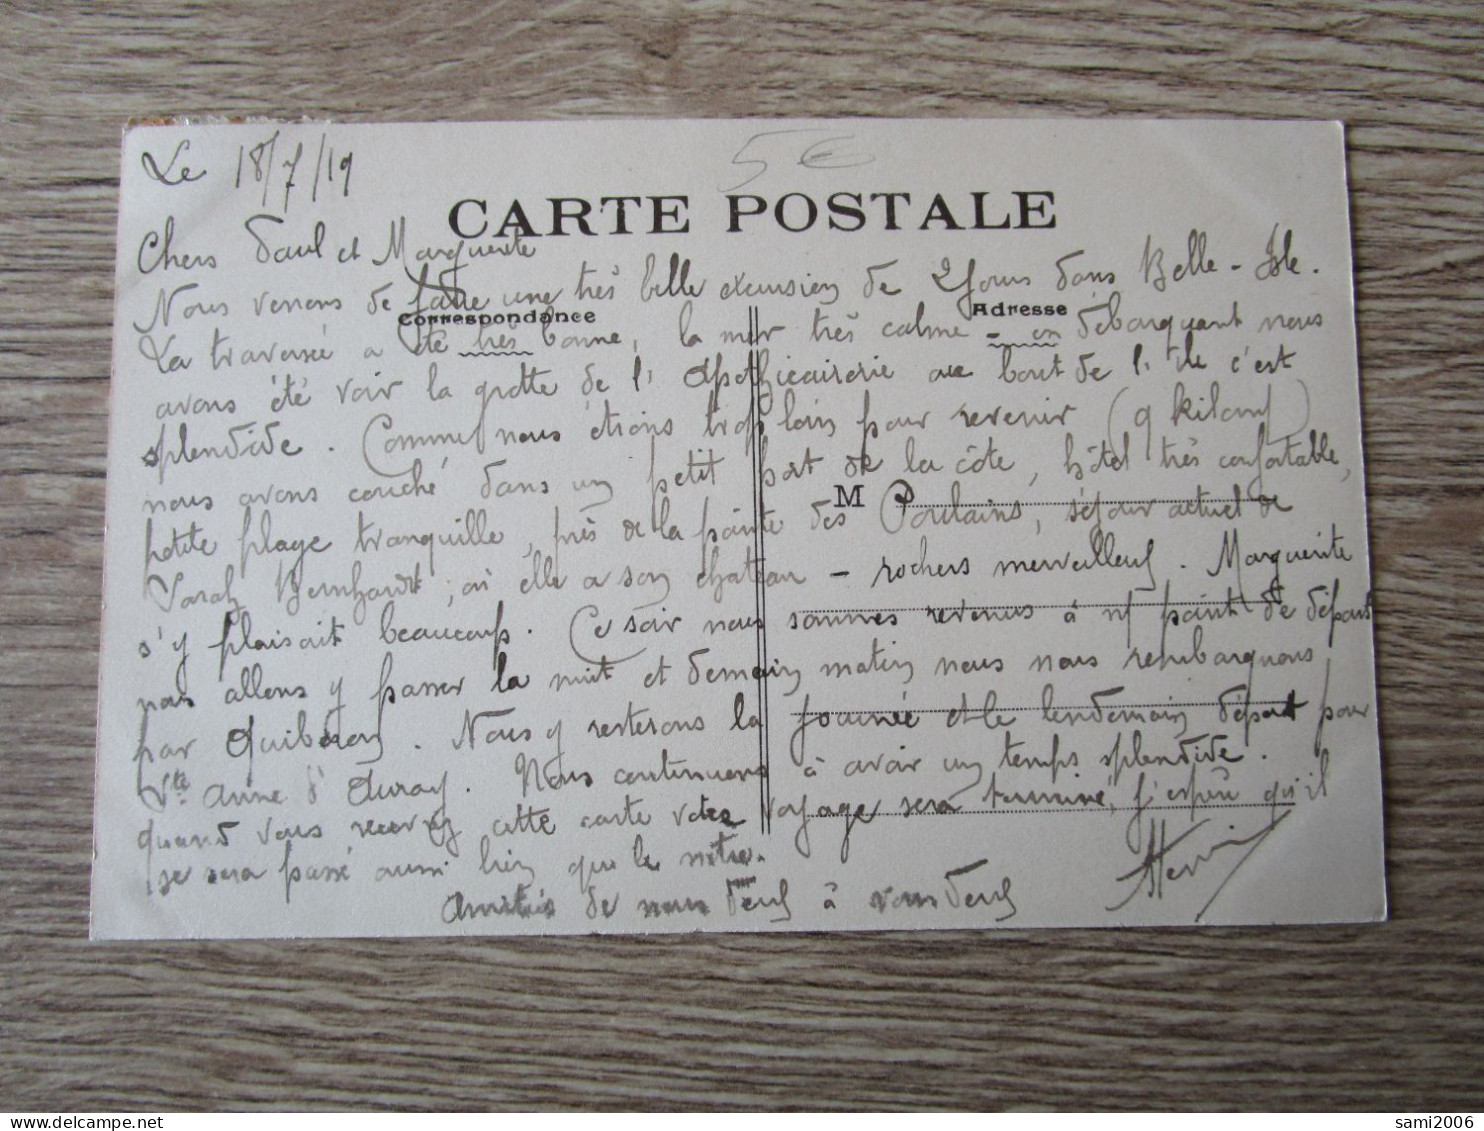 Le 18/7/19
5€
CARTE POSTALE
Chers Paul et Marguerite
Nous venons de faire une très belle excursion de 2 jours dans Belle-Isle.
Correspondance
Adresse
La traversée a été très bonne, la mer très calme - en débarquant nous
avons été voir la grotte de l'Apothicairerie au bout de l'île c'est
splendide. Comme nous étions trop loin pour revenir (9 kilom)
nous avons couché dans un petit port de la côte, hôtel très confortable,
M
petite plage tranquille, près de la pointe des Poulains, séjour actuel de
Sarah Bernhardt, où elle a son chateau - rochers merveilleux. Marguerite
s'y plaisait beaucoup. Ce soir nous sommes revenus à n/ point de départ
nous allons y passer la nuit et demain matin nous nous rembarquons
par Quiberon. Nous y resterons la journée et le lendemain départ pour
Ste Anne d'Auray. Nous continuons à avoir un temps splendide.
quand vous recevrez cette carte votre voyage sera terminé, j'espère qu'il
se sera passé aussi bien que le nôtre.
Amitiés de nous deux à vous deux
sami2006